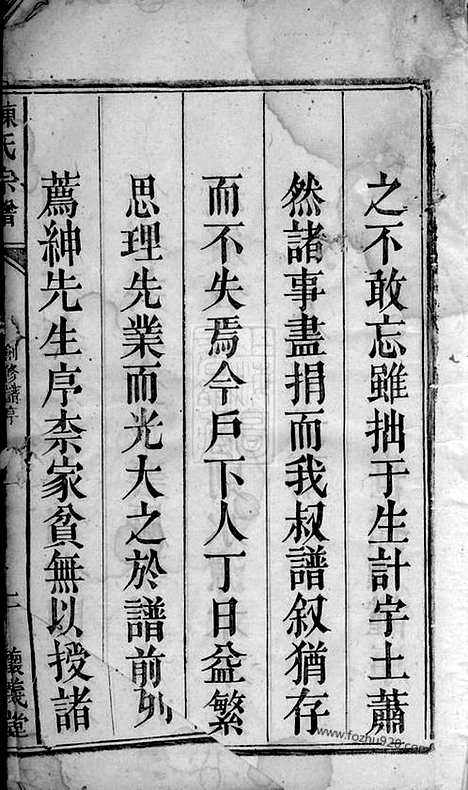 之不敢忘雖拙于生計宇土蕭
然諸事盡捐而我叔譜叙猶存
而不失焉今戶下人丁日益繁
思理先業而光大之於譜前列
薦紳先生序柰家貧無以授諸
陳氏宗譜
創修譜序
懷義堂
www.fozhu920.com